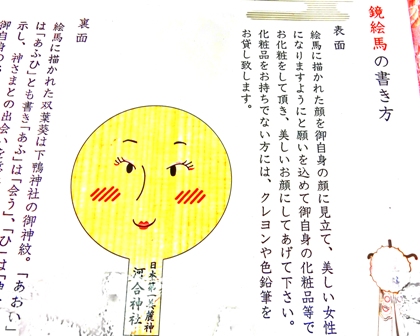 鏡絵馬の書き方
表面
絵馬に描かれた顔を御自身の顔に見立て、美しい女性
になりますようにと願いを込めて御自身の化粧品等で
お化粧をして頂き、美しいお顔にしてあげて下さい。
化粧品をお持ちでない方には、クレヨンや色鉛筆を
お貸し致します。
日本第一美麗神
河合神社
裏面
絵馬に描かれた双葉葵は下鴨神社の御神紋。「あおい」
は「あふひ」とも書き「あふ」は「会う」、「ひ」は
示し、神さまとの出会いを